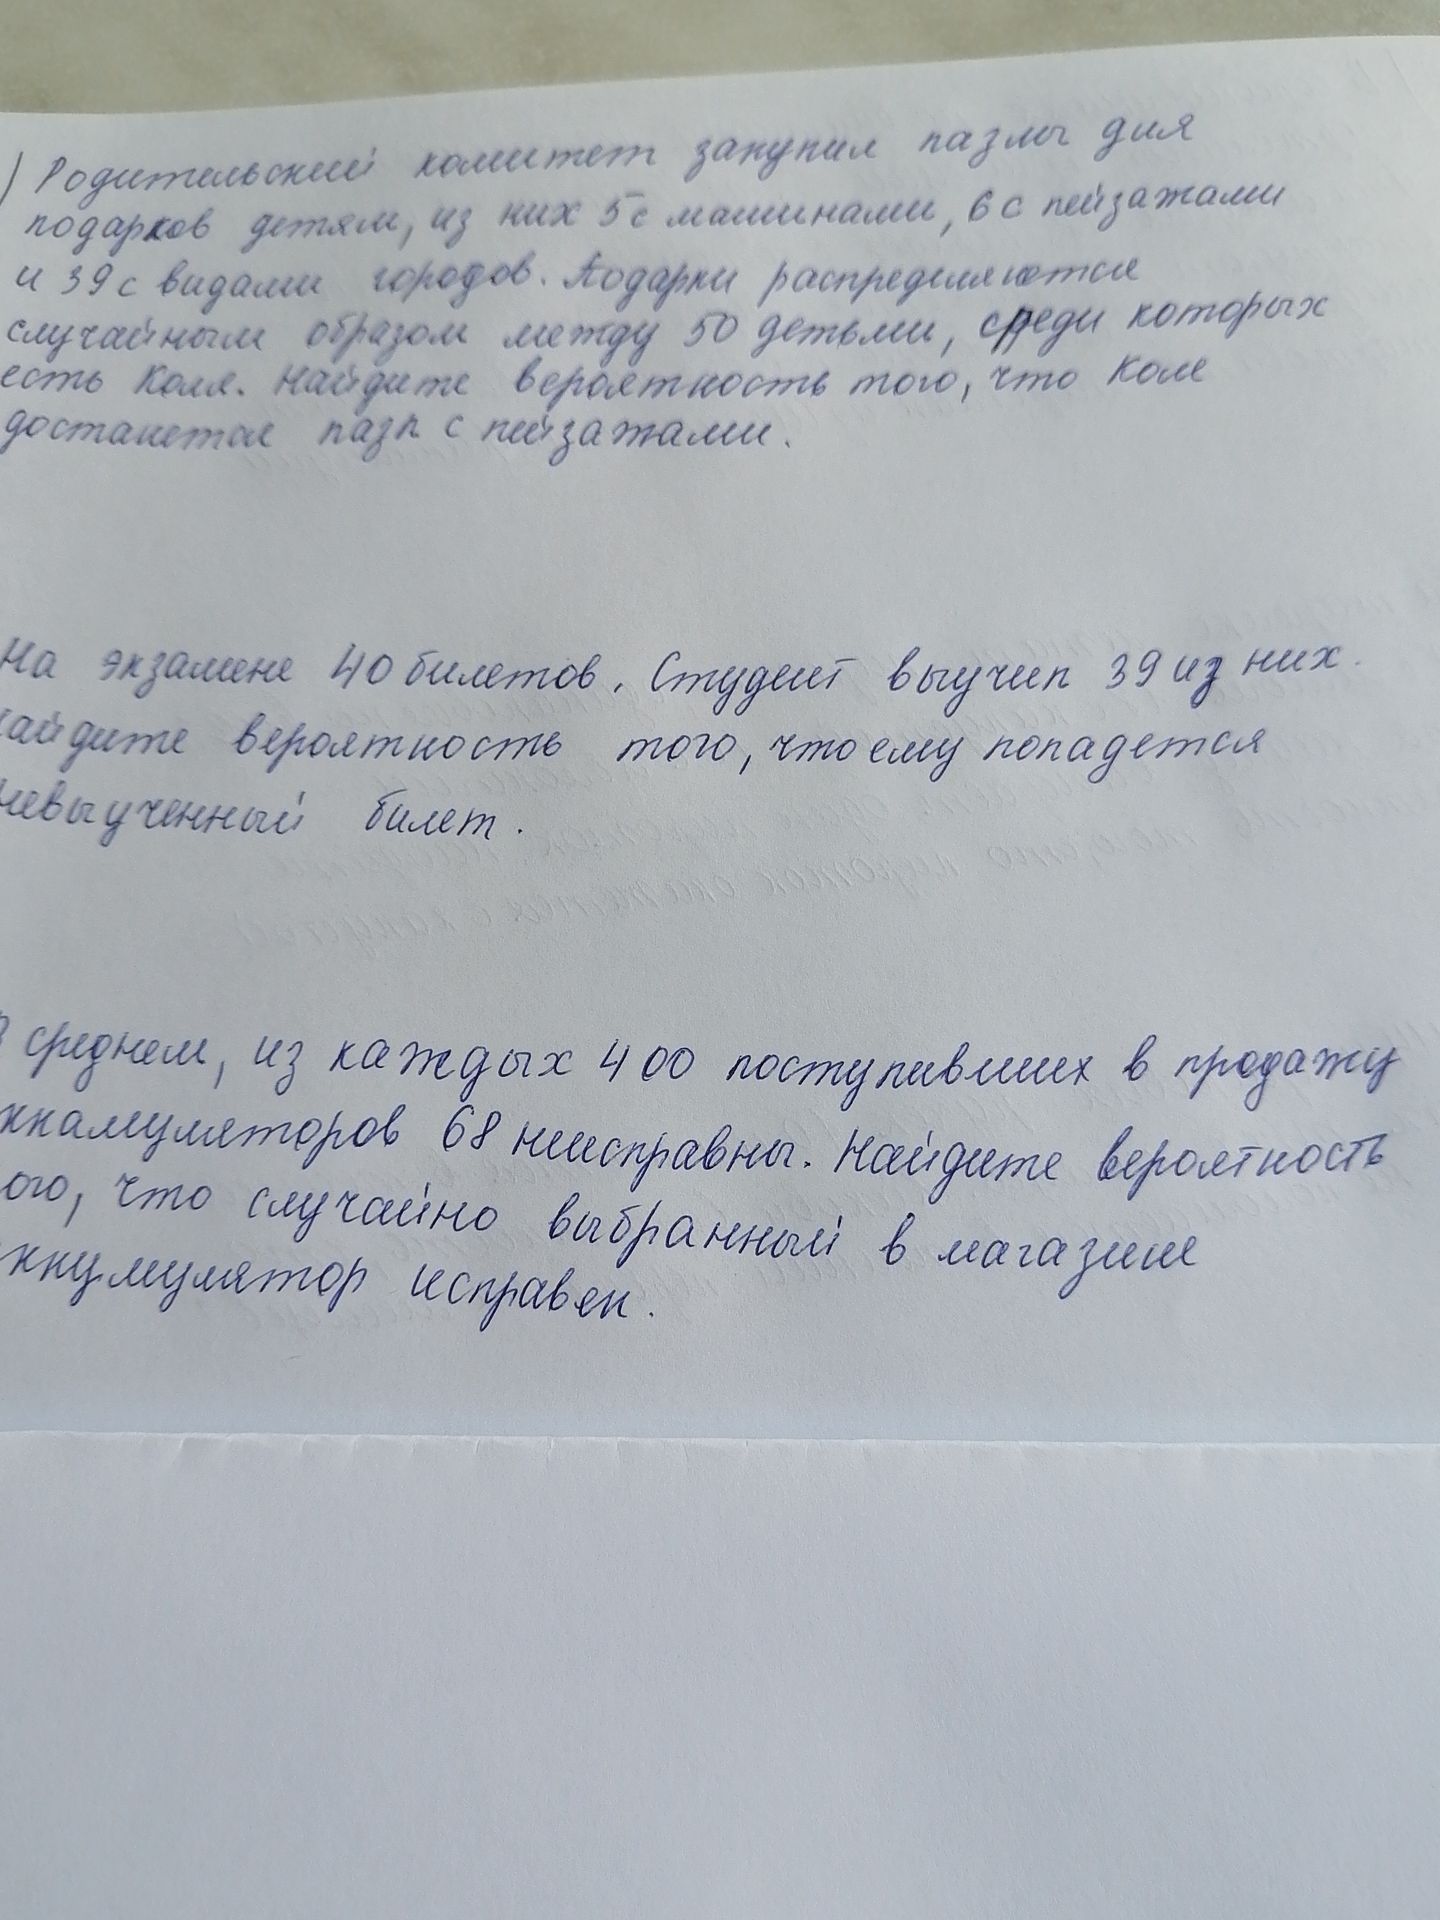 ) Родительский комитет закупил пазлы для
подарков детям, из них 5 с машинами, 6 с пейзажами
и 39 с видами городов. Подарки распределяются
случайным образом между 50 детьми, среди которых
есть Коля. Найдите вероятность того, что Коле
достанется пазл с пейзажами.
На экзамене 40 билетов. Студент выучил 39 из них.
айдите вероятность того, что ему попадется
невыученный билет.
В среднем, из каждых 400 поступивших в продажу
ккамуляторов 68 неисправны. Найдите вероятность
ого, что случайно выбранный в магазине
ккумулятор исправен.